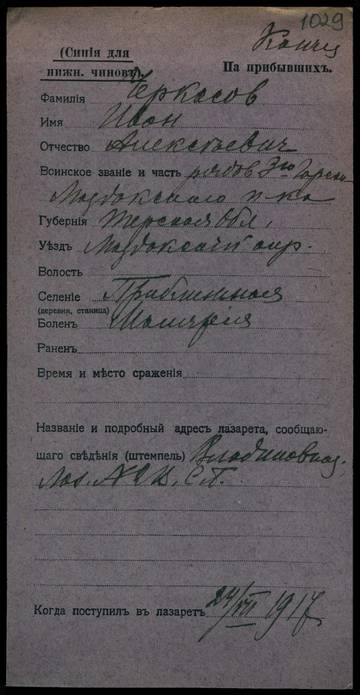 1029
(Синія для
нижн. чиновъ).
На прибывшихъ.
Фамилія Черкасов
Имя Иван
Отчество Алексеевич
Воинское званіе и часть рядов 3го Горско
Моздокского п-ка
Губернія Терская обл.
Уѣздъ Моздокский окр.
Волость
Селеніе Приближная
(деревня, станица)
Боленъ Малярія
Раненъ
Время и мѣсто сраженія
Названіе и подробный адресъ лазарета, сообщаю-
щаго свѣдѣнія (штемпель)
Когда поступилъ въ лазаретъ 24/VII 1917